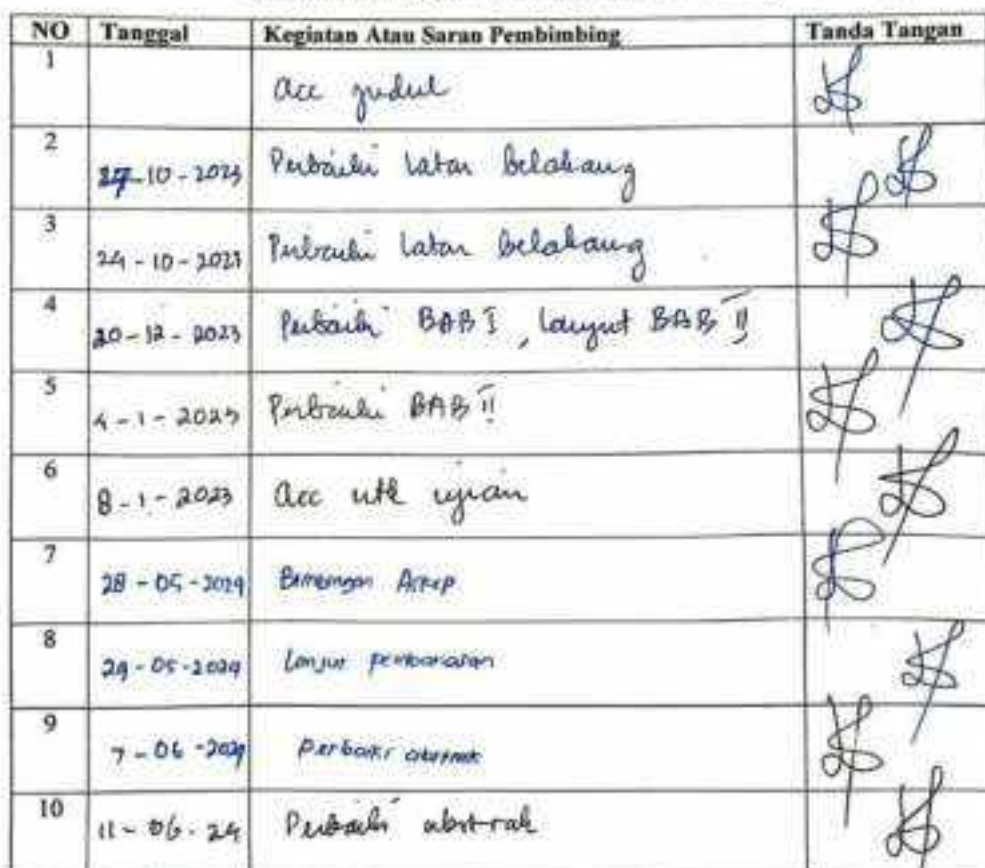 NO Tanggal Kegiatan Atau Saran Pembimbing Tanda Tangan
1 acc judul
2 27-10-2023 Perbaiki latar belakang
3 24-10-2023 Perbaiki latar belakang
4 20-12-2023 Perbaiki BAB I, lanjut BAB II
5 4-1-2023 Perbaiki BAB II
6 8-1-2023 acc utk ujian
7 28-05-2024 Bimbingan Askep
8 29-05-2024 Lanjut pembahasan
9 7-06-2024 Perbaiki abstrak
10 11-06-24 Perbaiki abstrak